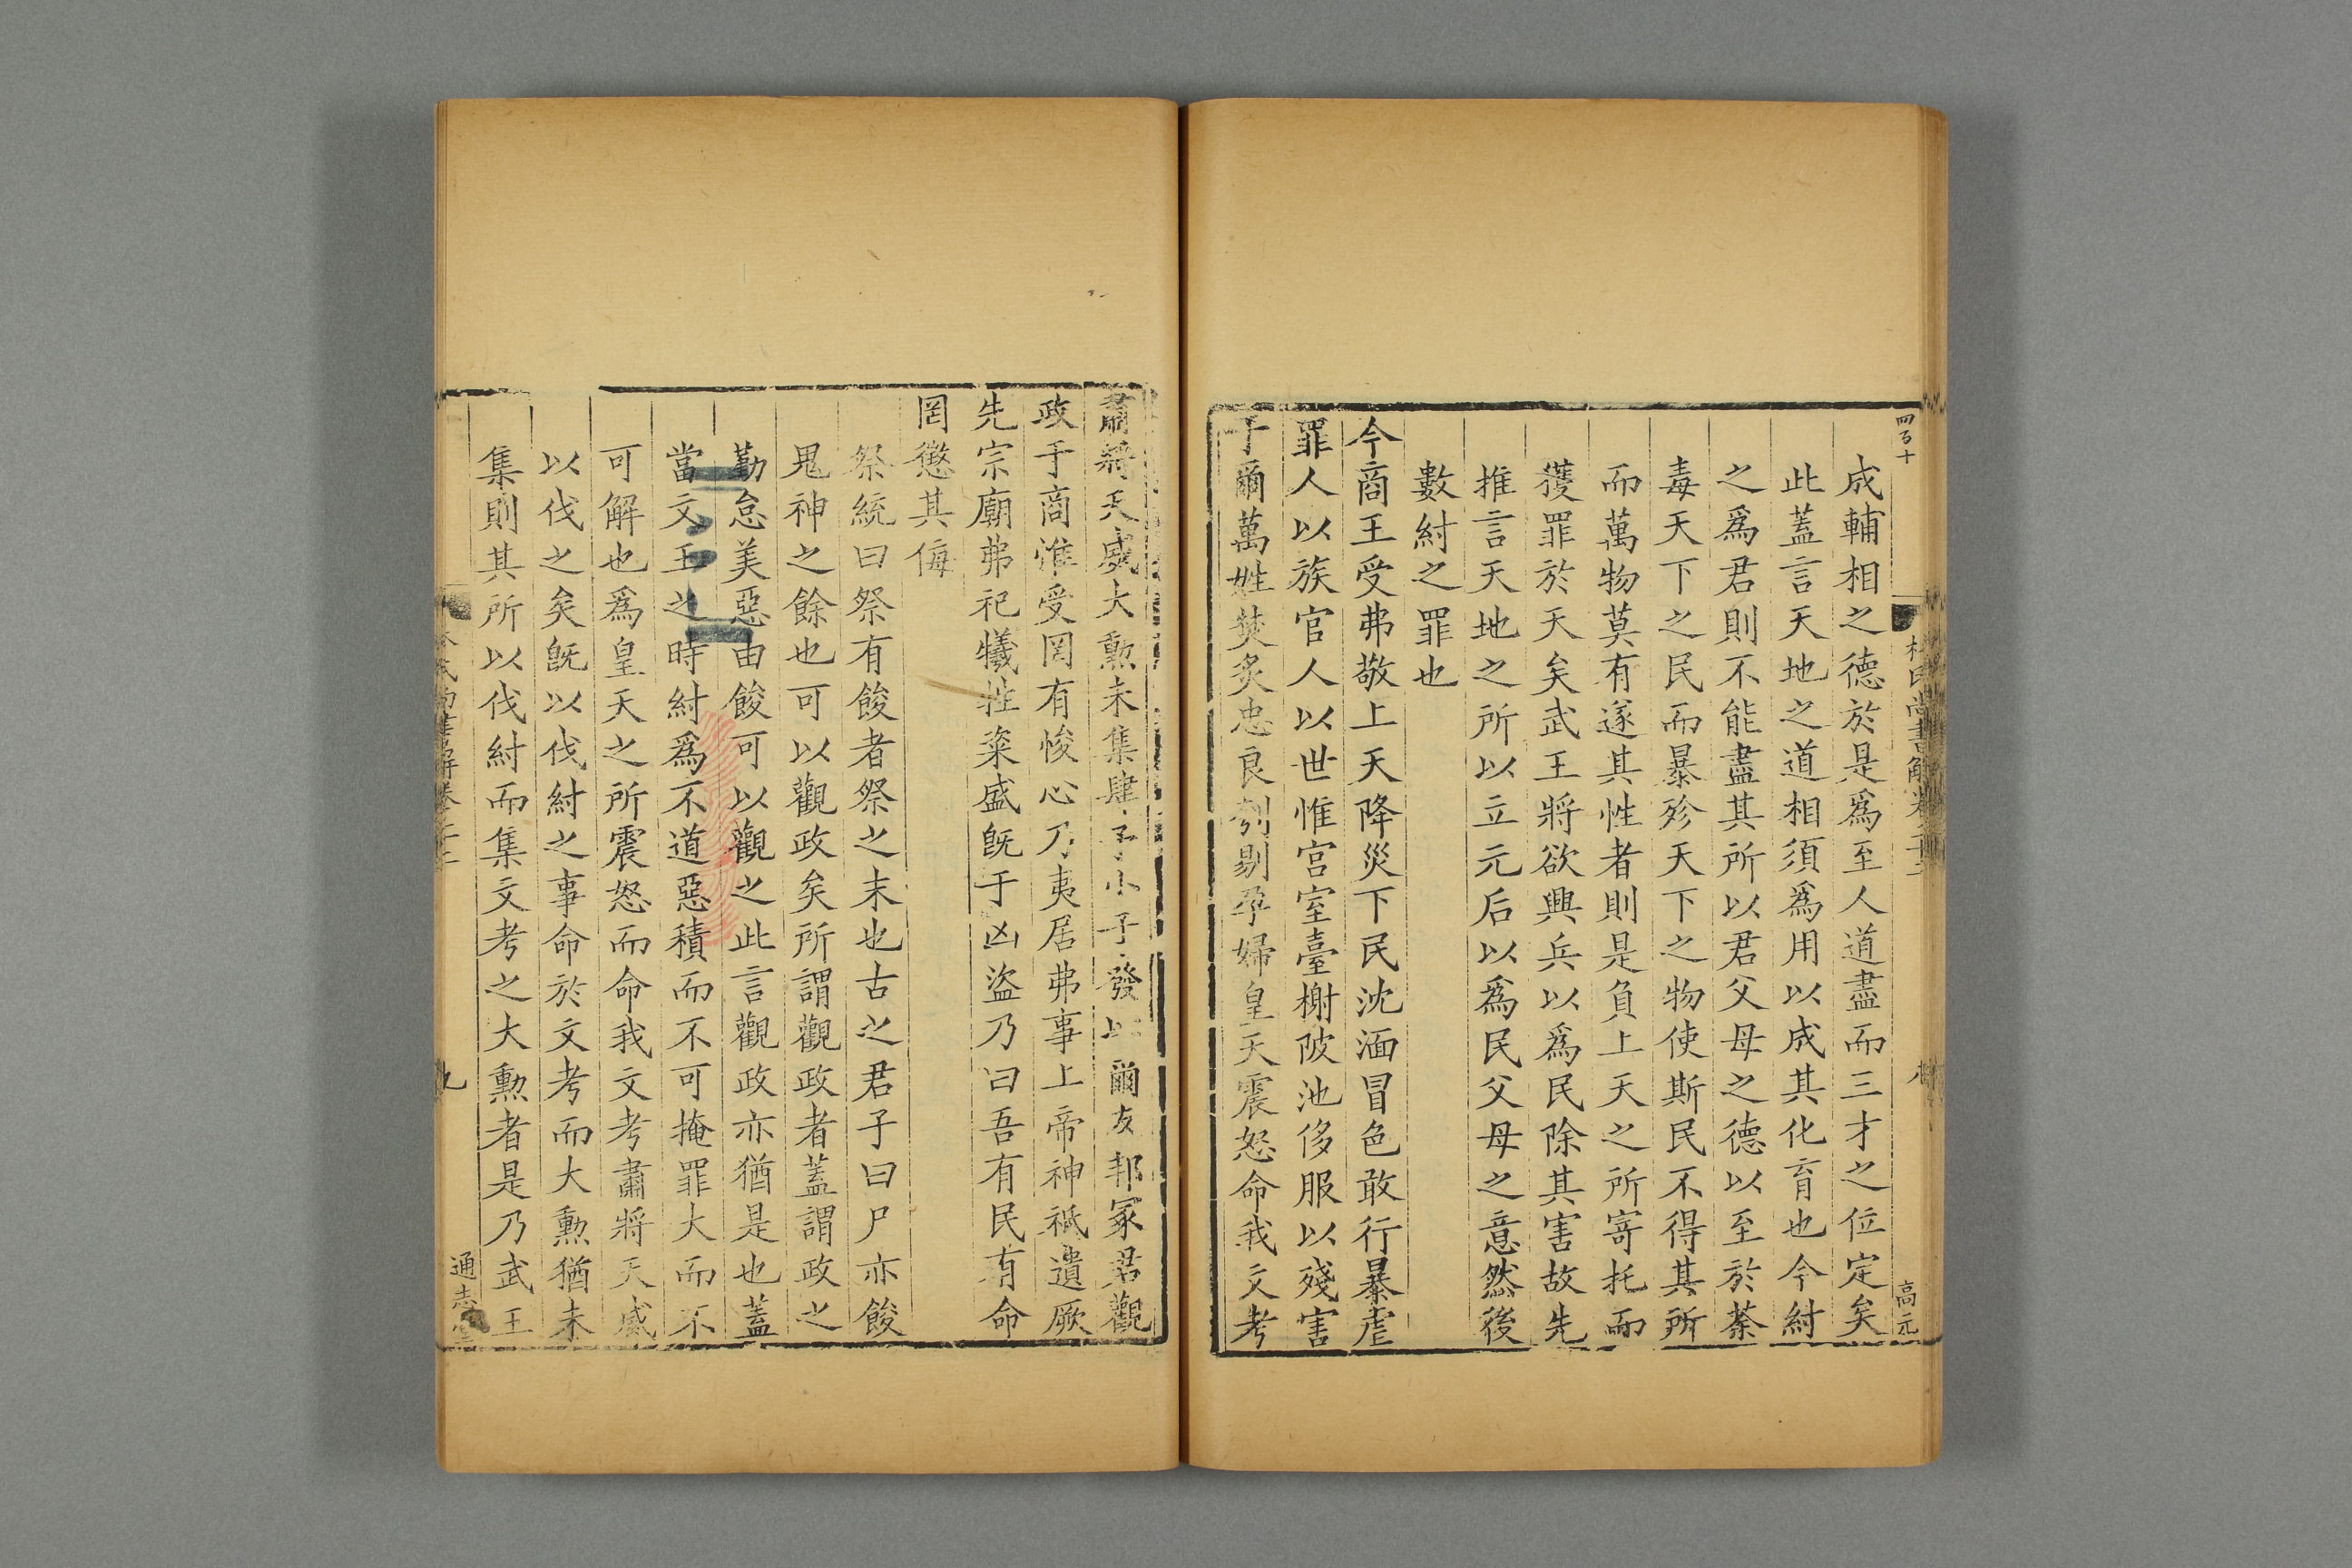 四百十
高元
成輔相之德於是爲至人道盡而三才之位定矣
此蓋言天地之道相須爲用以成其化育也今紂
之爲君則不能盡其所以君父母之德以至於荼
毒天下之民而暴殄天下之物使斯民不得其所
而萬物莫有遂其性者則是負上天之所寄托而
獲罪於天矣武王將欲興兵以爲民除其害故先
推言天地之所以立元后以爲民父母之意然後
數紂之罪也
今商王受弗敬上天降災下民沈湎冒色敢行暴虐
罪人以族官人以世惟宫室臺榭陂池侈服以殘害
于爾萬姓焚炙忠良刳剔孕婦皇天震怒命我文考
肅將天威大勲未集肆予小子發以爾友邦冢君觀
政于商惟受罔有悛心乃夷居弗事上帝神祗遺厥
先宗廟弗祀犧牲粢盛旣于凶盜乃曰吾有民有命
罔懲其侮
祭統曰祭有餕者祭之末也古之君子曰尸亦餕
鬼神之餘也可以觀政矣所謂觀政者蓋謂政之
勤怠美惡由餕可以觀之此言觀政亦猶是也蓋
當文王之時紂爲不道惡積而不可掩罪大而不
可解也爲皇天之所震怒而命我文考肅將天威
以伐之矣旣以伐紂之事命於文考而大勲猶未
集則其所以伐紂而集文考之大勲者是乃武王
九
通志堂